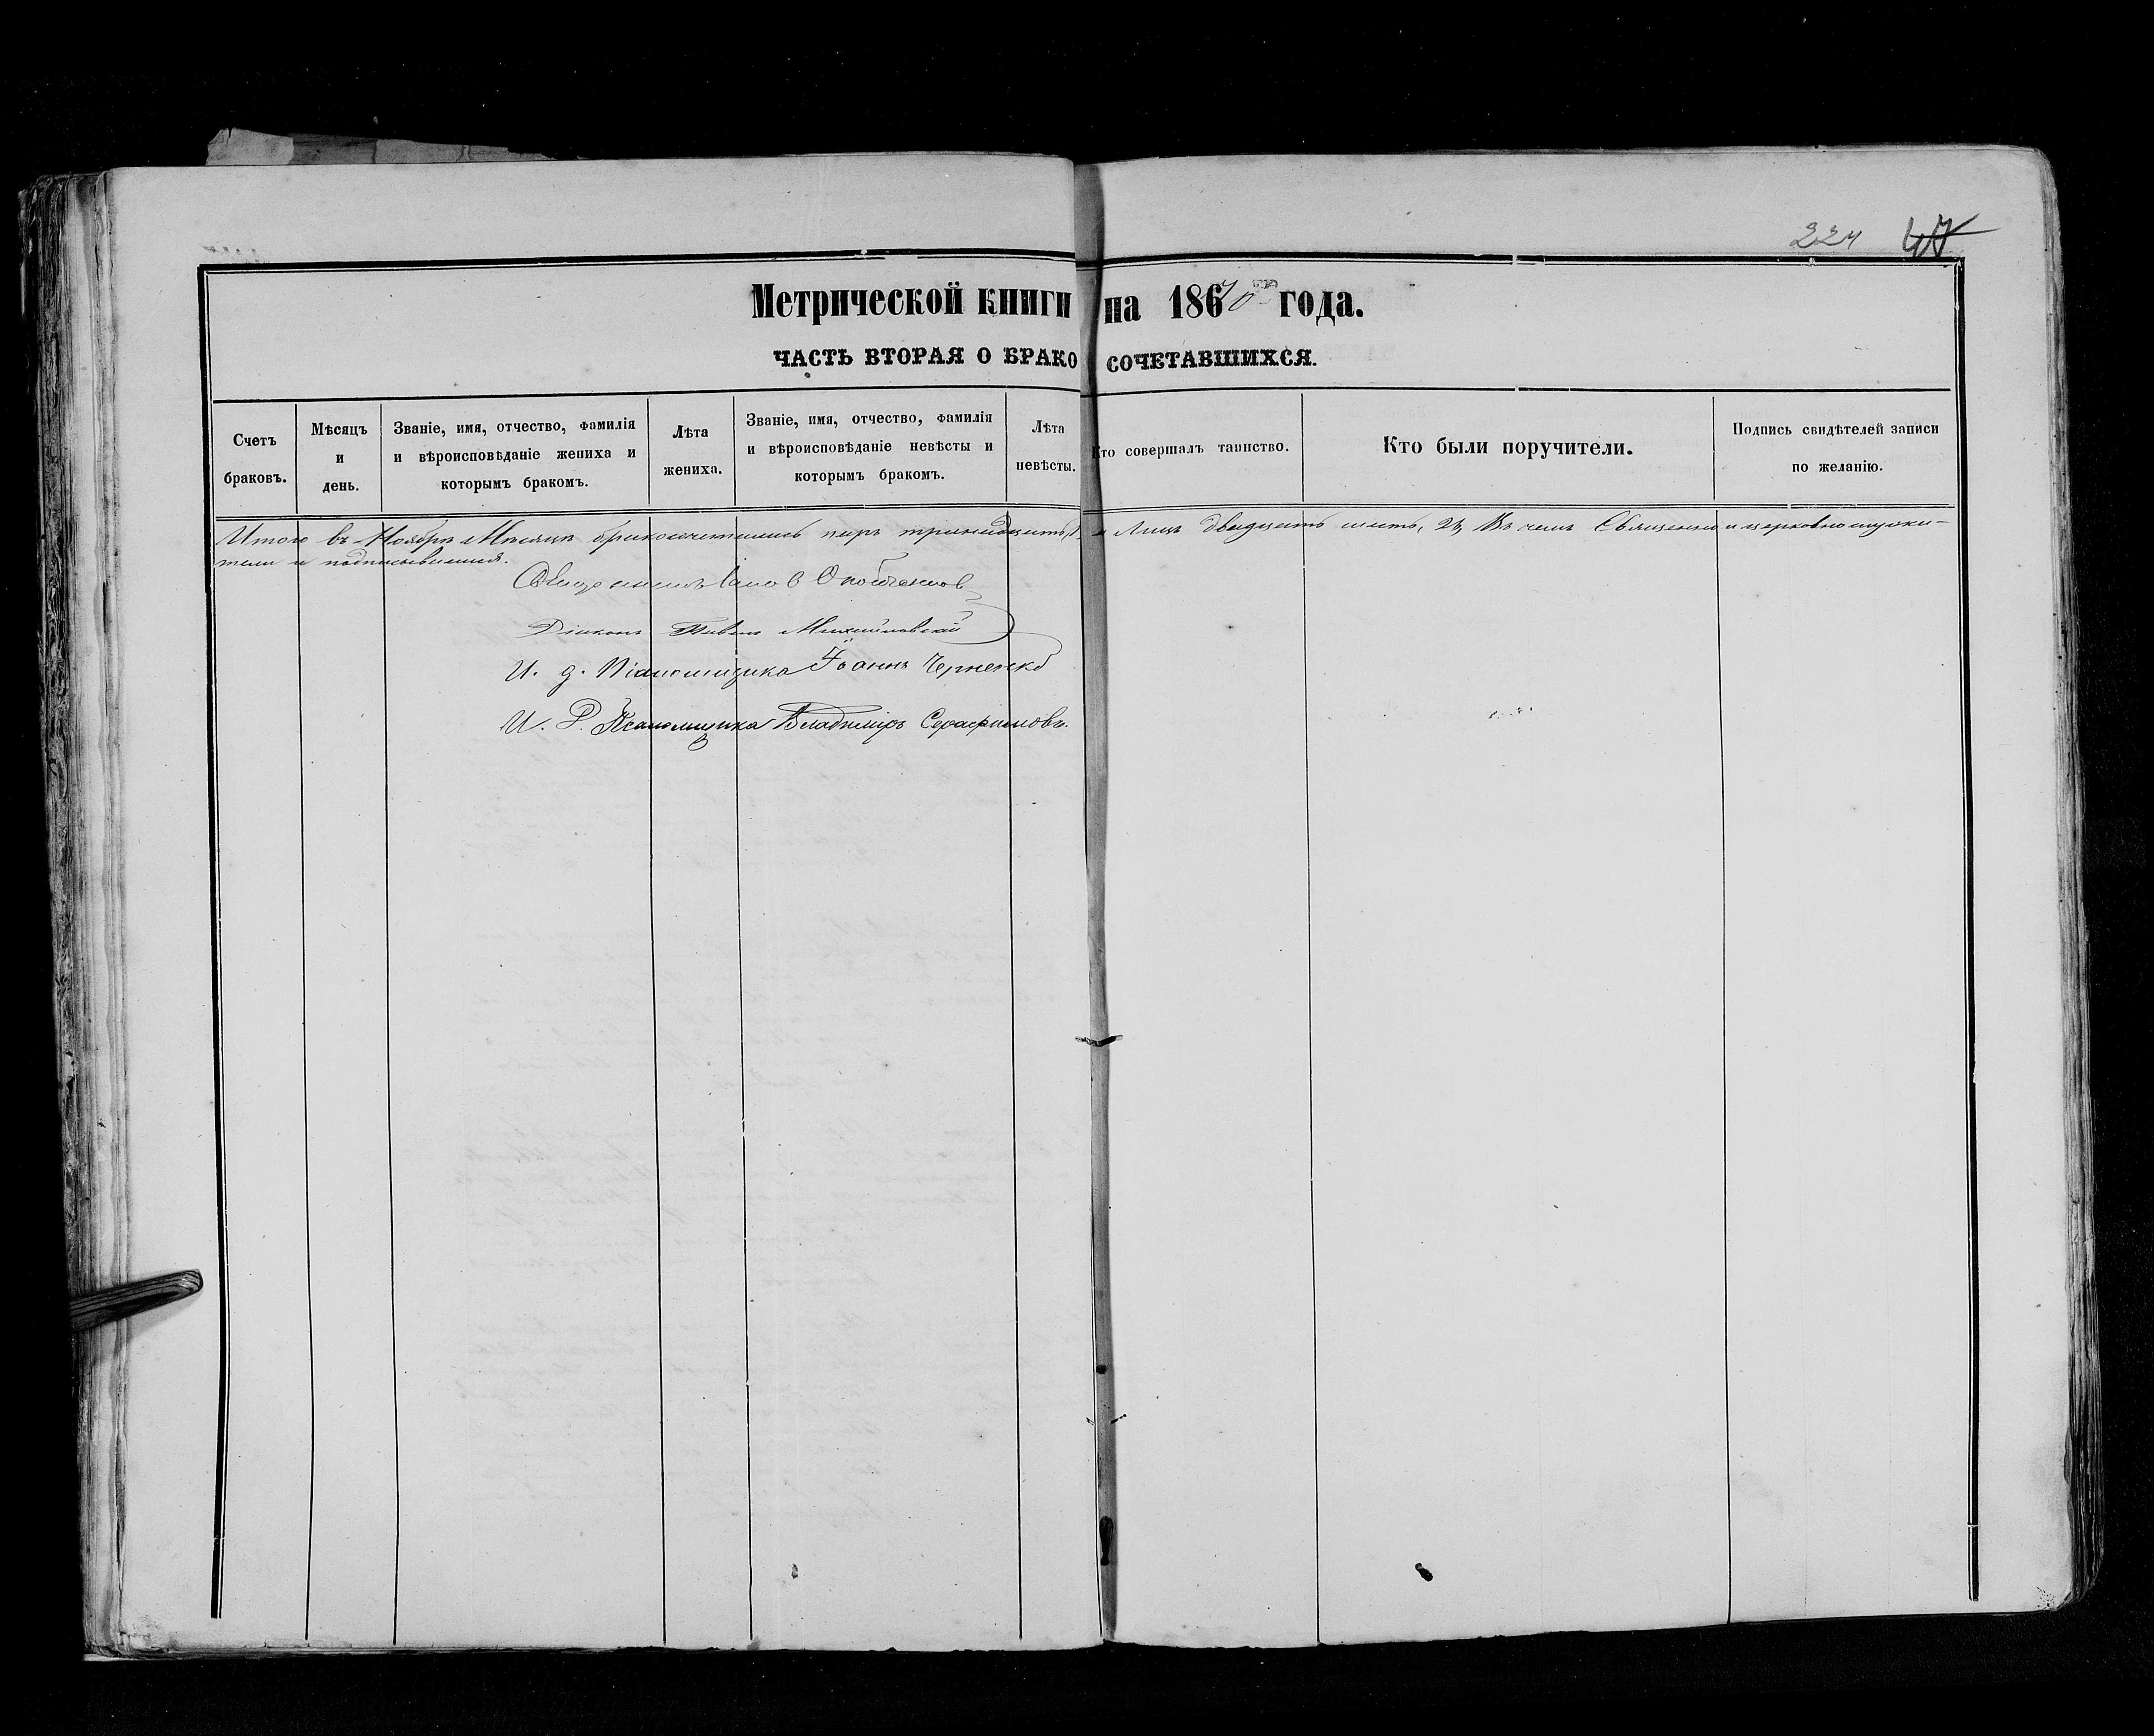 224 47
Метрической книги на 186 70 года.
ЧАСТЬ ВТОРАЯ О БРАКОСОЧЕТАВШИХСЯ.
Счетъ браковъ.
Мѣсяцъ и день.
Званіе, имя, отчество, фамилія и вѣроисповѣданіе жениха и которымъ бракомъ.
Лѣта жениха.
Званіе, имя, отчество, фамилія и вѣроисповѣданіе невѣсты и которымъ бракомъ.
Лѣта невѣсты.
Кто совершалъ таинство.
Кто были поручители.
Подпись свидѣтелей записи по желанію.
Итого въ Ноябрѣ Мѣсяцѣ бракосочетались паръ тринадцать, а Лицъ двадцать шесть, 26, Въ чемъ Священно и церковнослужи-
тели и подписываемся.
Священникъ
Діаконъ Павелъ Михайловскій
И. д. Псаломщика Іоаннъ Черненко
И. Д. Псаломщика Владиміръ Серафимовъ.